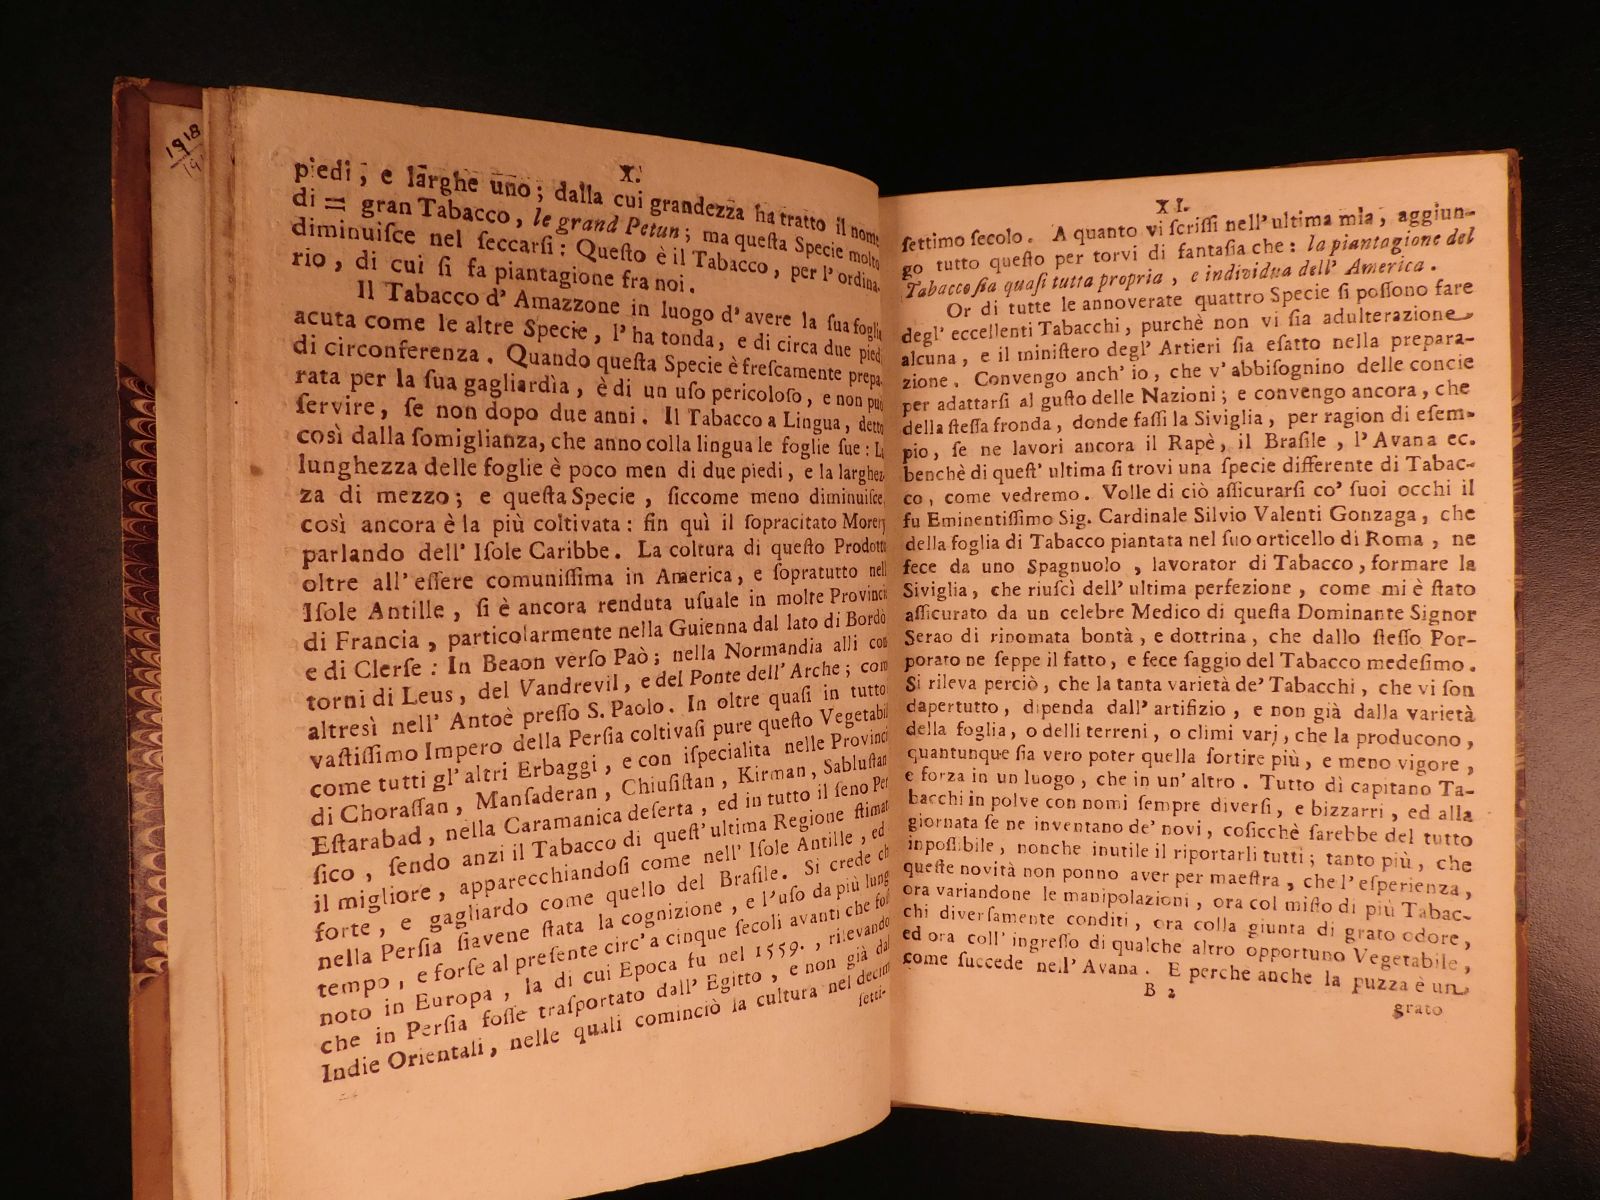 1918
X.
piedi, e larghe uno; dalla cui grandezza ha tratto il nome
di = gran Tabacco, le grand Petun; ma queſta Specie molto
diminuiſce nel ſeccarſi: Queſto è il Tabacco, per l' ordina-
rio, di cui ſi fa piantagione fra noi.
Il Tabacco d' Amazzone in luogo d' avere la ſua foglia
acuta come le altre Specie, l' ha tonda, e di circa due piedi
di circonferenza. Quando queſta Specie è freſcamente prepa-
rata per la ſua gagliardìa, è di un uſo pericoloſo, e non può
ſervire, ſe non dopo due anni. Il Tabacco a Lingua, detto
così dalla ſomiglianza, che anno colla lingua le foglie ſue: La
lunghezza delle foglie è poco men di due piedi, e la larghez-
za di mezzo; e queſta Specie, ſiccome meno diminuiſce,
così ancora è la più coltivata: fin quì il ſopracitato Morery
parlando dell' Iſole Caribbe. La coltura di queſto Prodotto
oltre all' eſſere comuniſſima in America, e ſopratutto nell
Iſole Antille, ſi è ancora renduta uſuale in molte Provincie
di Francia, particolarmente nella Guienna dal lato di Bordò
e di Clerſe: In Beaon verſo Paò; nella Normandia alli con-
torni di Leus, del Vandrevil, e del Ponte dell' Arche; com
altresì nell' Antoè preſſo S. Paolo. In oltre quaſi in tutto
vaſtiſſimo Impero della Perſia coltivaſi pure queſto Vegetabil
come tutti gl' altri Erbaggi, e con iſpecialita nelle Provinci
di Choraſſan, Manſaderan, Chiuſiſtan, Kirman, Sabluſtan
Eſtarabad, nella Caramanica deſerta, ed in tutto il ſeno Per
ſico, ſendo anzi il Tabacco di queſt' ultima Regione ſtimat
il migliore, apparecchiandoſi come nell' Iſole Antille, ed
forte, e gagliardo come quello del Braſile. Si crede ch
nella Perſia ſiavene ſtata la cognizione, e l' uſo da più lung
tempo, e forſe al preſente circ' a cinque ſecoli avanti che foſ
noto in Europa, la di cui Epoca fu nel 1559., rilevando
che in Perſia foſſe traſportato dall' Egitto, e non già dal
Indie Orientali, nelle quali cominciò la cultura nel decim
ſetti-
XI.
ſettimo ſecolo. A quanto vi ſcriſſi nell' ultima mia, aggiun-
go tutto queſto per torvi di fantaſia che: la piantagione del
Tabacco ſia quaſi tutta propria, e individua dell' America.
Or di tutte le annoverate quattro Specie ſi poſſono fare
degl' eccellenti Tabacchi, purchè non vi ſia adulterazione
alcuna, e il miniſtero degl' Artieri ſia eſatto nella prepara-
zione. Convengo anch' io, che v' abbiſognino delle concie
per adattarſi al guſto delle Nazioni; e convengo ancora, che
della ſteſſa fronda, donde faſſi la Siviglia, per ragion di eſem-
pio, ſe ne lavori ancora il Rapè, il Braſile, l' Avana ec.
benchè di queſt' ultima ſi trovi una ſpecie differente di Tabac-
co, come vedremo. Volle di ciò aſſicurarſi co' ſuoi occhi il
fu Eminentiſſimo Sig. Cardinale Silvio Valenti Gonzaga, che
della foglia di Tabacco piantata nel ſuo orticello di Roma, ne
fece da uno Spagnuolo, lavorator di Tabacco, formare la
Siviglia, che riuſcì dell' ultima perfezione, come mi è ſtato
aſſicurato da un celebre Medico di queſta Dominante Signor
Serao di rinomata bontà, e dottrina, che dallo ſteſſo Por-
porato ne ſeppe il fatto, e fece ſaggio del Tabacco medeſimo.
Si rileva perciò, che la tanta varietà de' Tabacchi, che vi ſon
dapertutto, dipenda dall' artifizio, e non già dalla varietà
della foglia, o delli terreni, o climi varj, che la producono,
quantunque ſia vero poter quella ſortire più, e meno vigore,
e forza in un luogo, che in un' altro. Tutto dì capitano Ta-
bacchi in polve con nomi ſempre diverſi, e bizzarri, ed alla
giornata ſe ne inventano de' novi, coſicchè ſarebbe del tutto
inpoſſibile, nonche inutile il riportarli tutti; tanto più, che
queſte novità non ponno aver per maeſtra, che l' eſperienza,
ora variandone le manipolazioni, ora col miſto di più Tabac-
chi diverſamente conditi, ora colla giunta di grato odore,
ed ora coll' ingreſſo di qualche altro opportuno Vegetabile,
come ſuccede nell' Avana. E perchè anche la puzza è un
B 2
grato